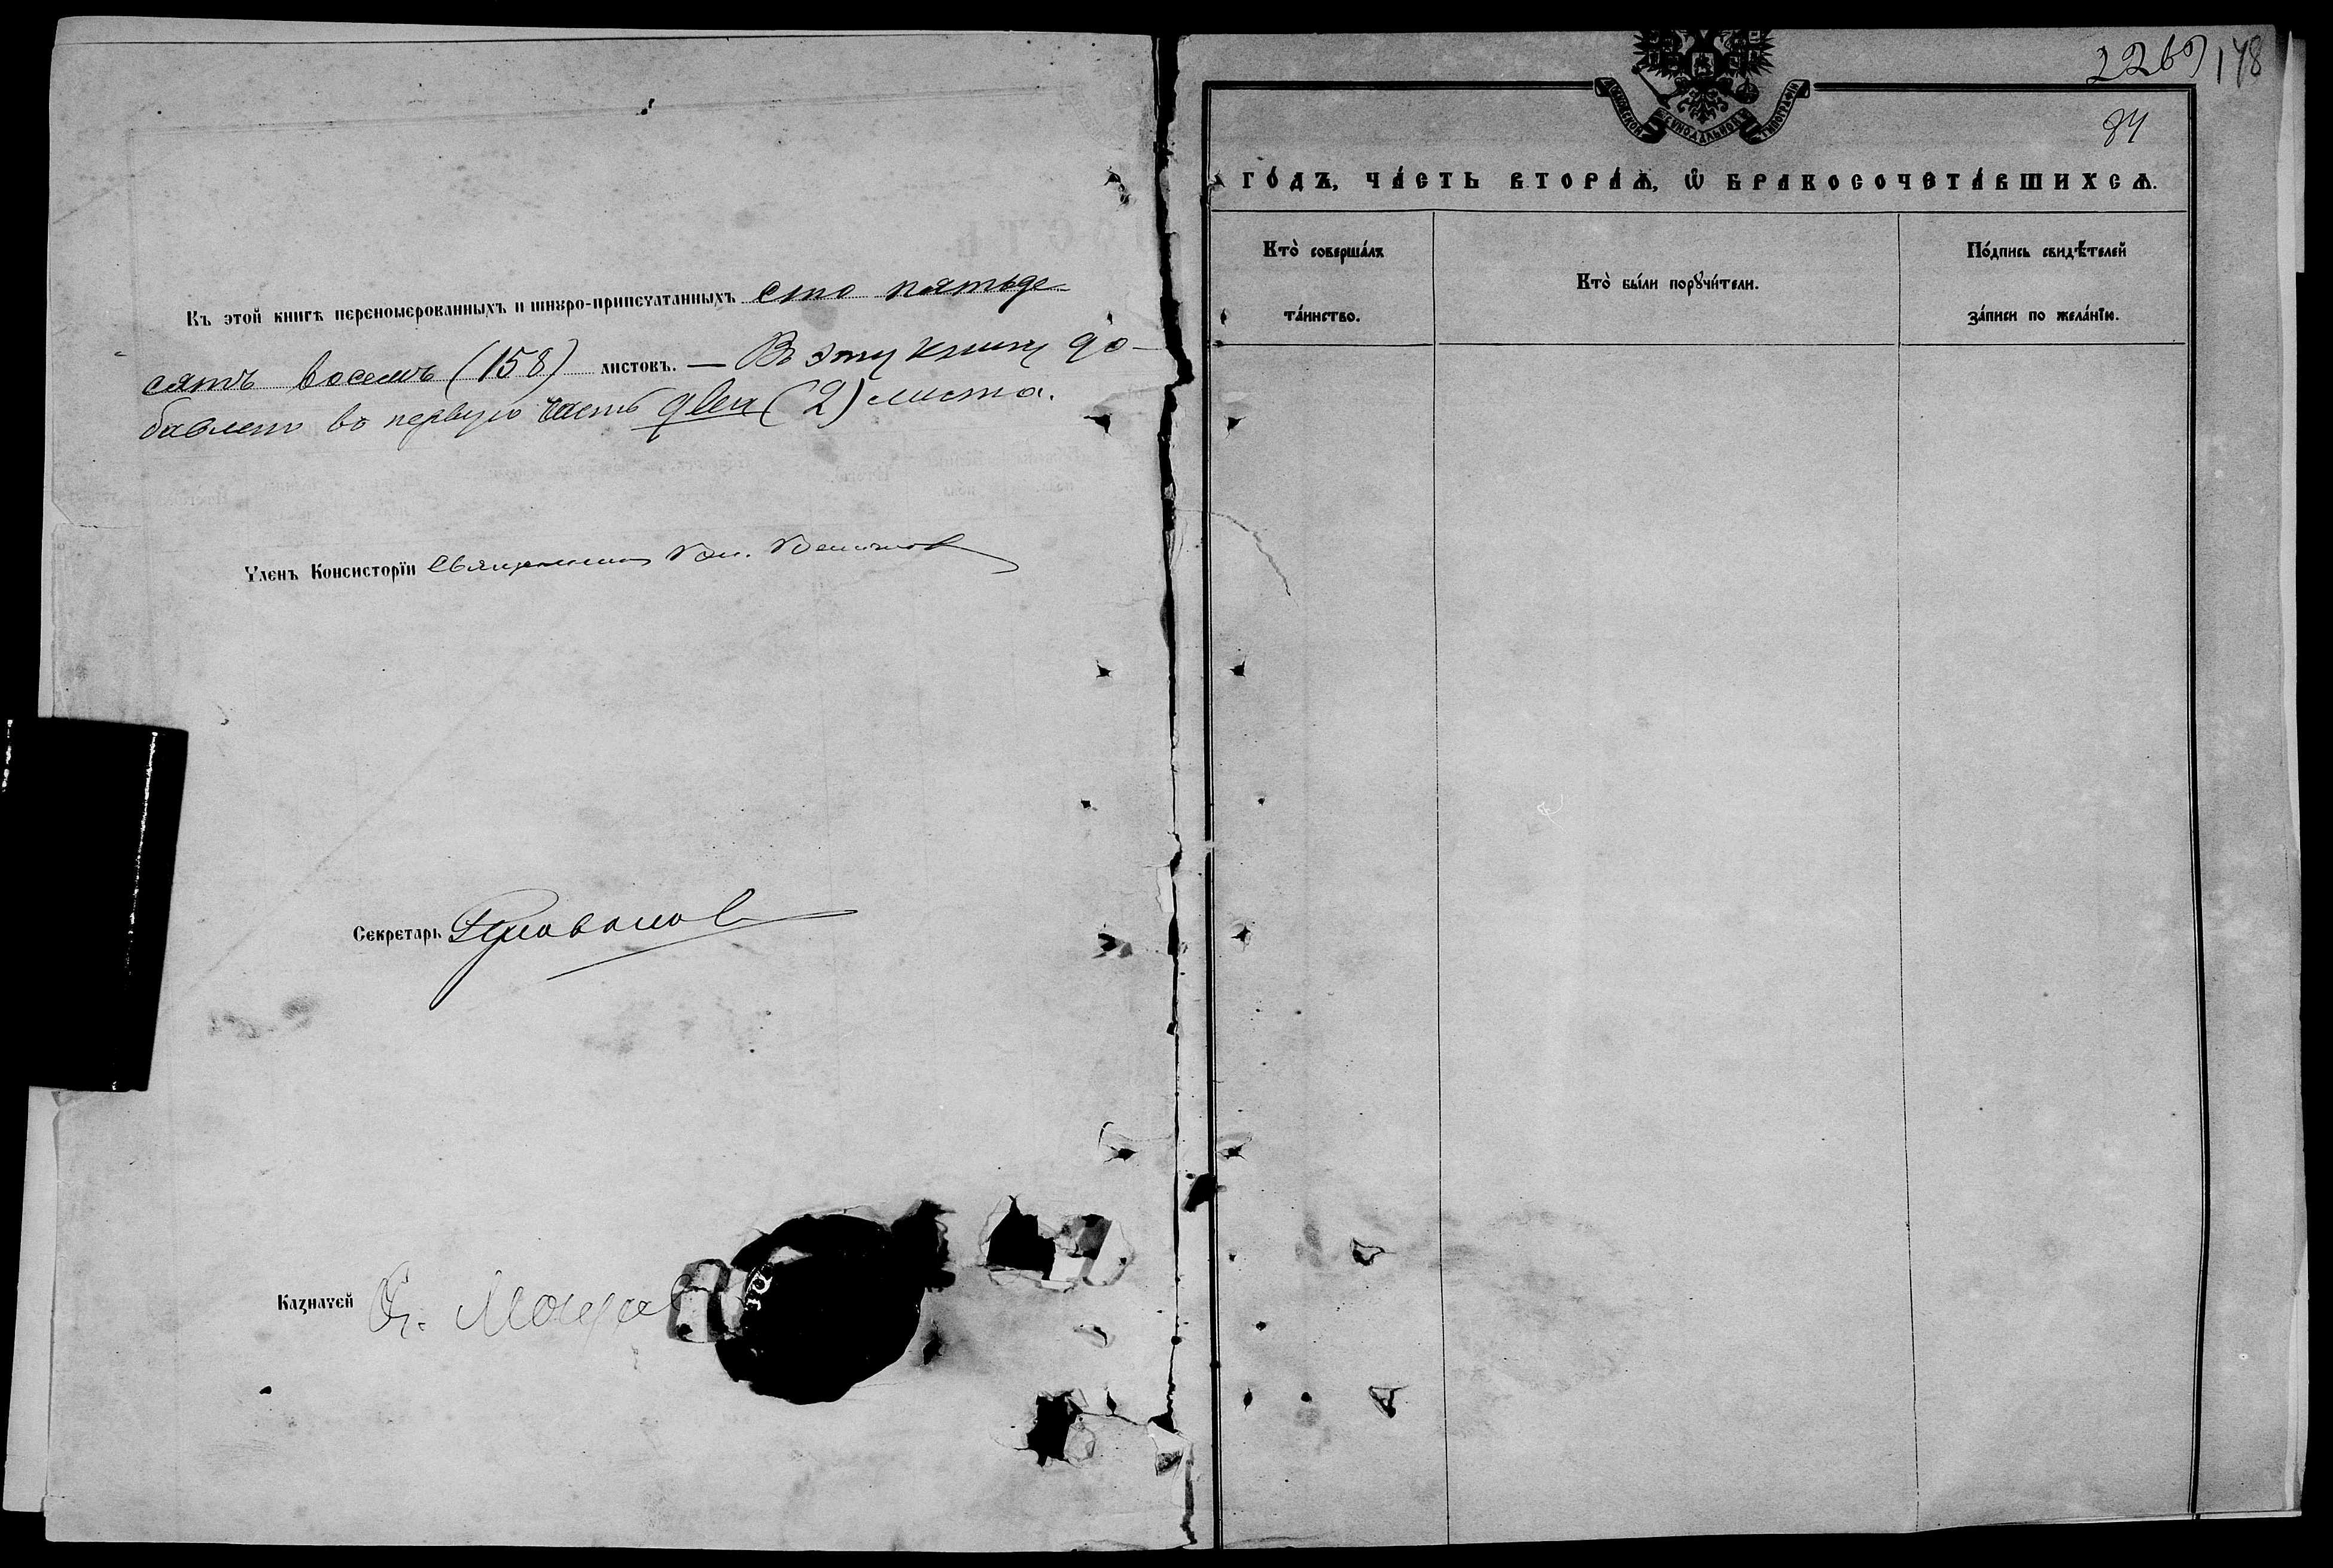 Къ этой книгѣ переномерованныхъ и шнуро-припечатанныхъ сто пятьде-
сятъ восемь (158) листовъ. — Въ эту книгу до-
бавлено въ первую часть два (2) листа.
Членъ Консисторїи Священникъ
Секретарь
Казначей
2269 148
84
МОСКОВСКОЙ СѴНОДАЛЬНОЙ ТИПОГРАФІИ
го́дъ, ча́сть втора́ѧ, ѡ҆ бракосочета́вшихсѧ.
Кто̀ соверша́лъ
та́инство.
Кто̀ бы́ли порꙋчи́тели.
По́дпись свидѣ́телей
за́писи по жела́нїю.